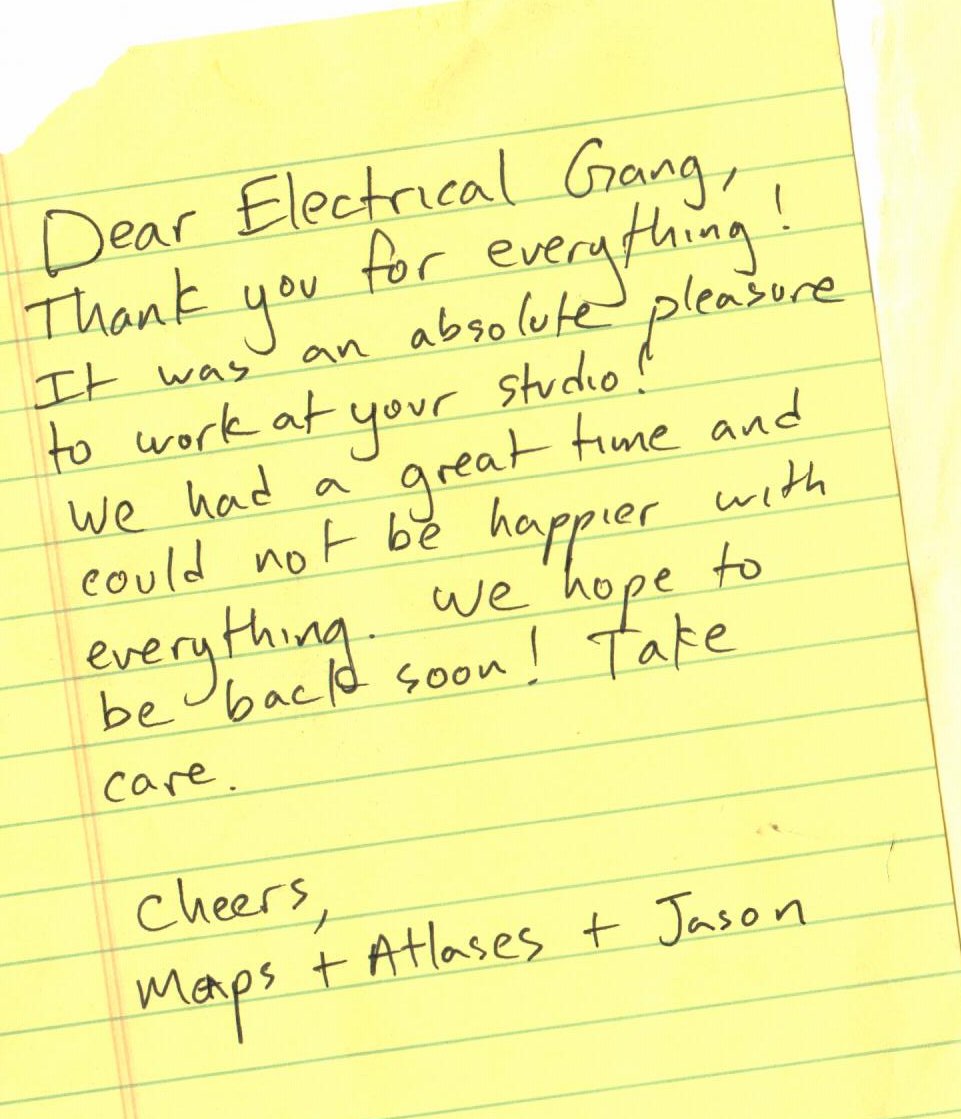 Dear Electrical Gang,
Thank you for everything!
It was an absolute pleasure
to work at your studio!
We had a great time and
could not be happier with
everything. We hope to
be back soon! Take
care.
Cheers,
Maps + Atlases + Jason